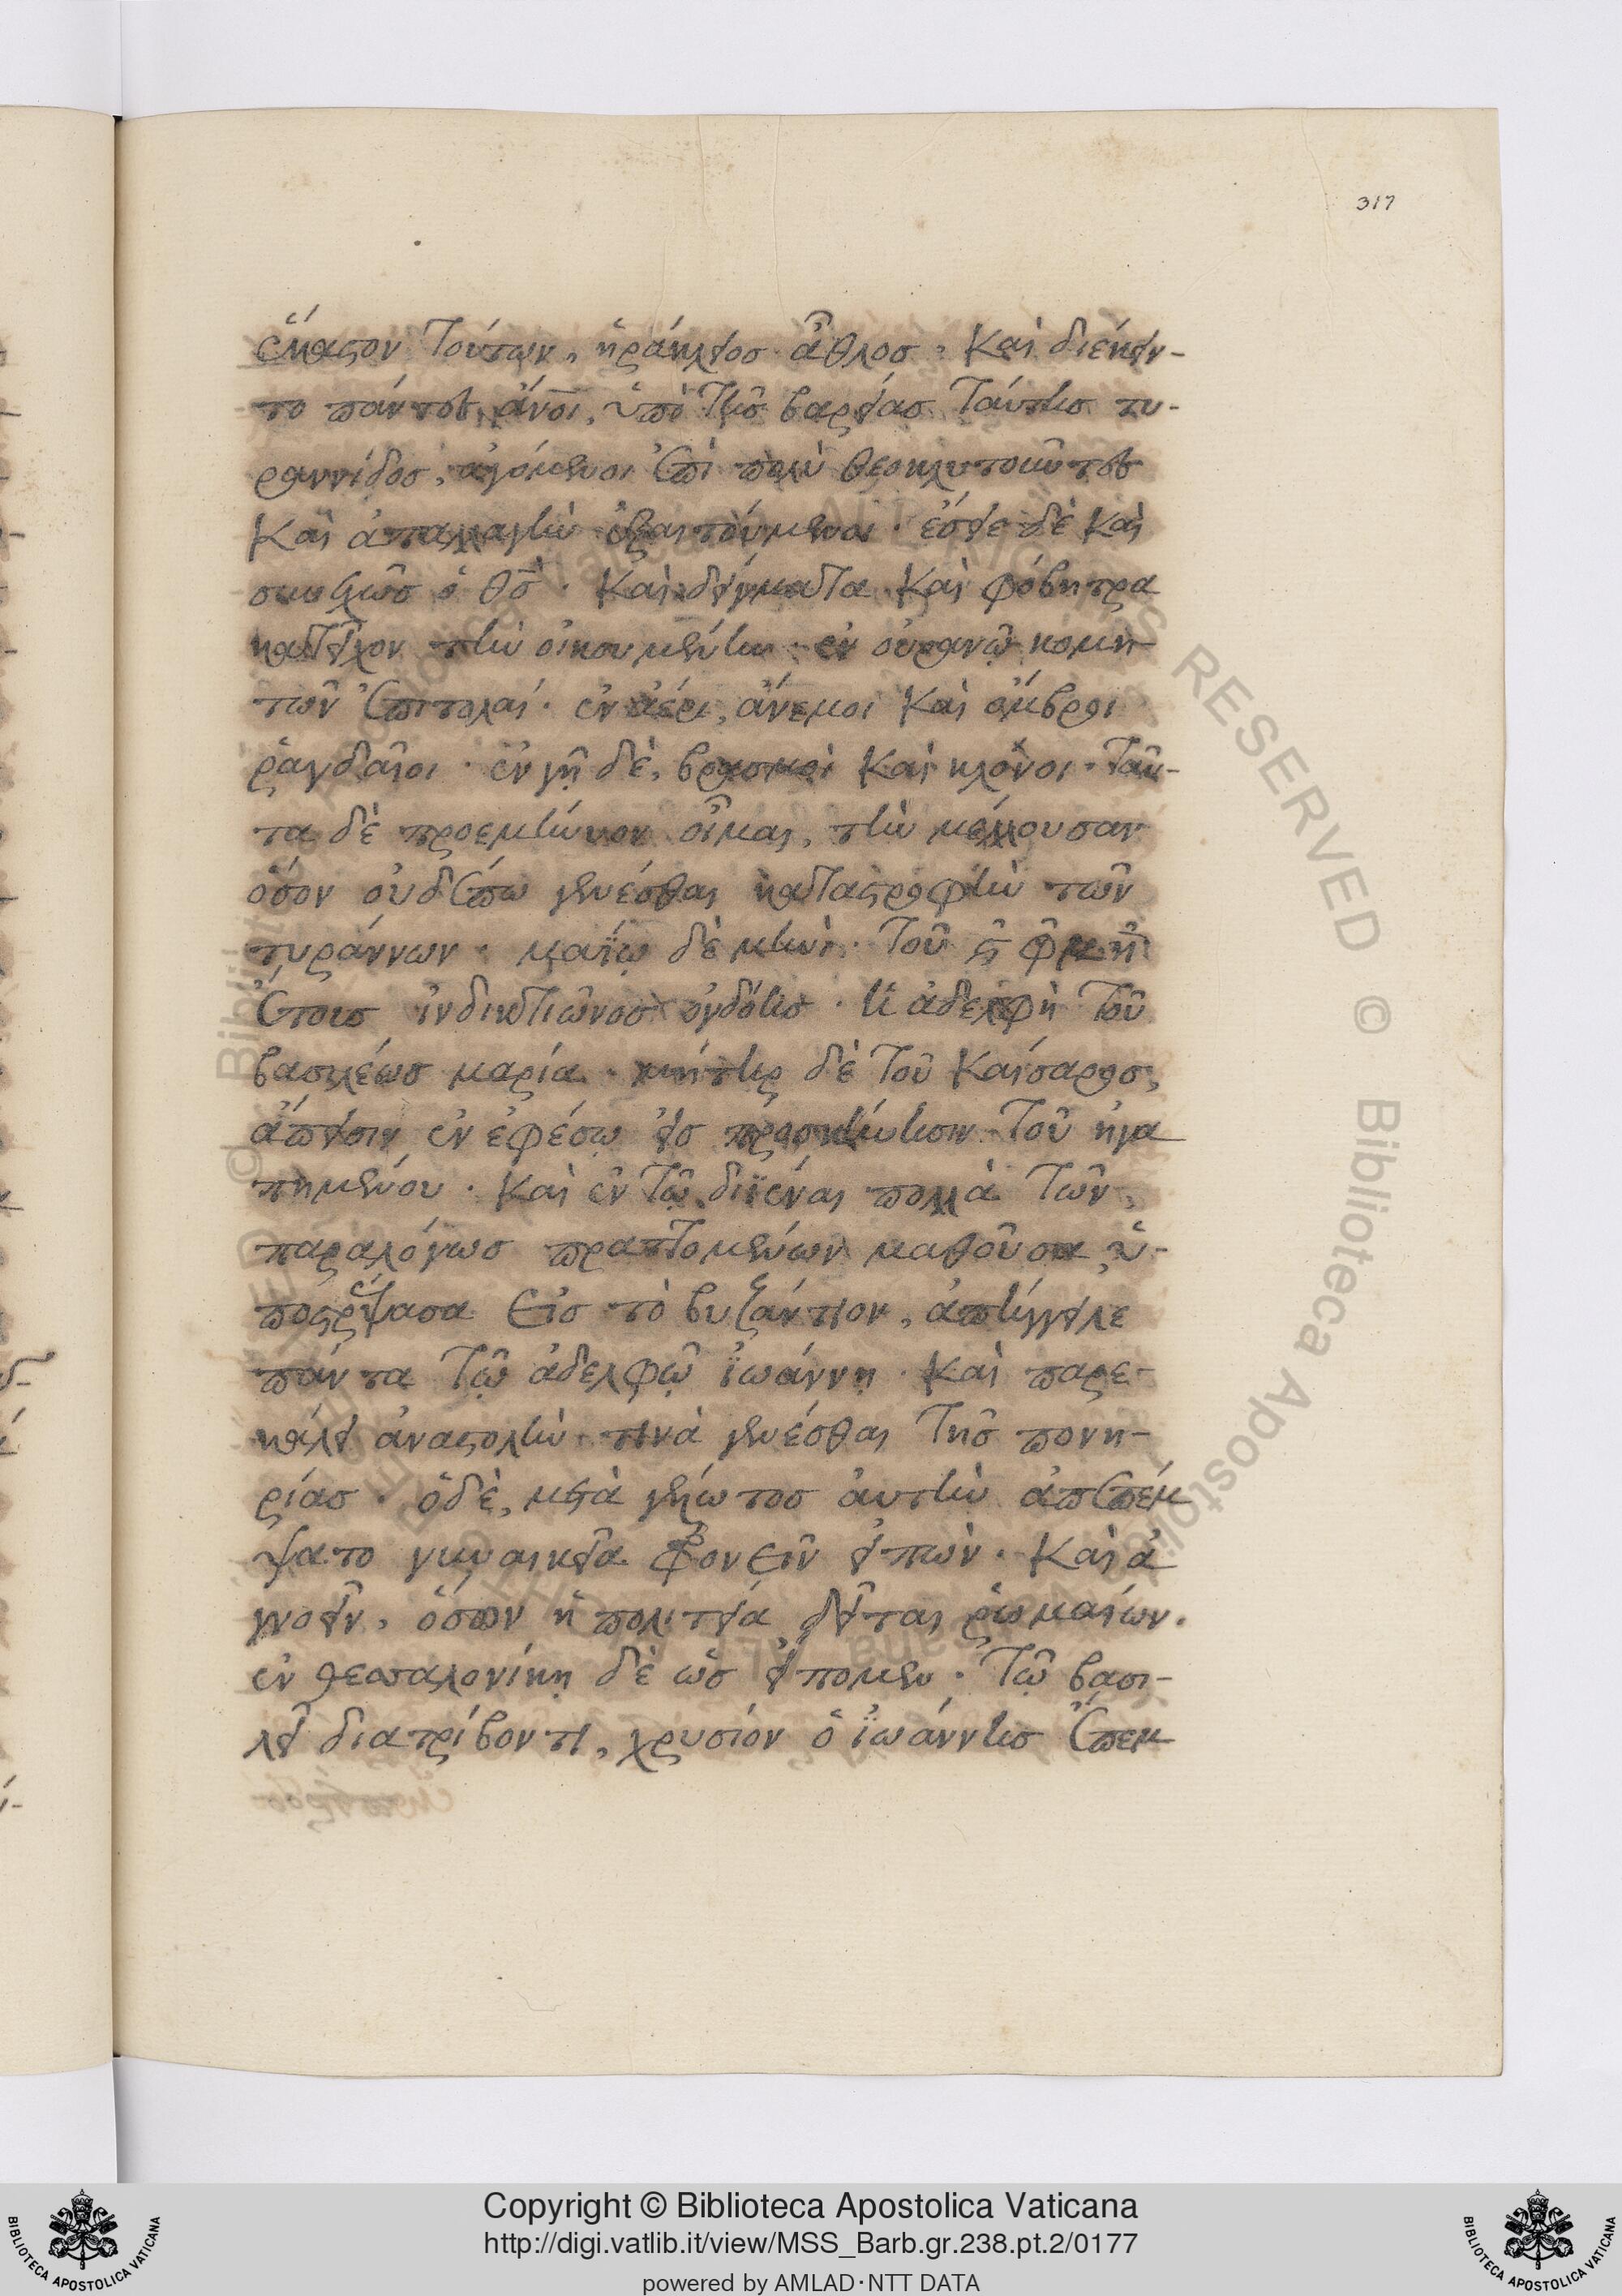 317
ἕκαστον τούτων, ἡράκλειος ἆθλος. καὶ διέκειν-
το πάντες ἄνοι, ὑπὸ τῆς βαρείας ταύτης τυ-
ραννίδος, ἀγόμενοι ἐπὶ πολὺ θεοκλυτοῦντες
καὶ ἀπαλλαγὴν ἐξαιτούμενοι. ἔσειε δὲ καὶ
συνεχῶς ὁ θς. καὶ δείγματα καὶ φόβητρα
κατεῖχον τὴν οἰκουμένην. ἐν οὐρανῷ κομη-
τῶν ἐπιτολαί. ἐν ἀέρι, ἄνεμοι καὶ ὄμβροι
ῥαγδαῖοι. ἐν γῇ δὲ, βρασμοὶ καὶ κλόνοι. ταῦ-
τα δὲ προεμήνυον οἶμαι, τὴν μέλλουσαν
ὅσον οὐδέπω γενέσθαι καταστροφὴν τῶν
τυράννων. μαΐῳ δὲ μηνὶ. τοῦ ϛ φ μ η
ἔτους ἰνδικτιῶνος ὀγδόης. ἡ ἀδελφὴ τοῦ
βασιλέως μαρία. μήτηρ δὲ τοῦ καίσαρος,
ἄπεισιν ἐν ἐφέσῳ εἰς προσκύνησιν τοῦ ἠγα
πημένου. καὶ ἐν τῷ διϊέναι πολλὰ τῶν
παραλόγως πραττομένων μαθοῦσα ὑ-
ποστρέψασα εἰς τὸ βυζάντιον, ἀπήγγειλε
πάντα τῷ ἀδελφῷ ἰωάννῃ. καὶ παρε-
κάλει ἀναστολὴν τινὰ γενέσθαι τῆς πονη-
ρίας. ὁ δὲ, μετὰ γέλωτος αὐτὴν ἀπεπέμ
ψατο γυναικεῖα φρονεῖν εἰπών. καὶ ἀ
γνοεῖν, ὅσων ἡ πολιτεία δεῖται ῥωμαίων.
ἐν θεσσαλονίκῃ δὲ ὡς εἴπομεν. τῷ βασι-
λεῖ διατρίβοντι, χρυσίον ὁ ἰωάννης ἔπεμ
Copyright © Biblioteca Apostolica Vaticana
http://digi.vatlib.it/view/MSS_Barb.gr.238.pt.2/0177
powered by AMLAD·NTT DATA